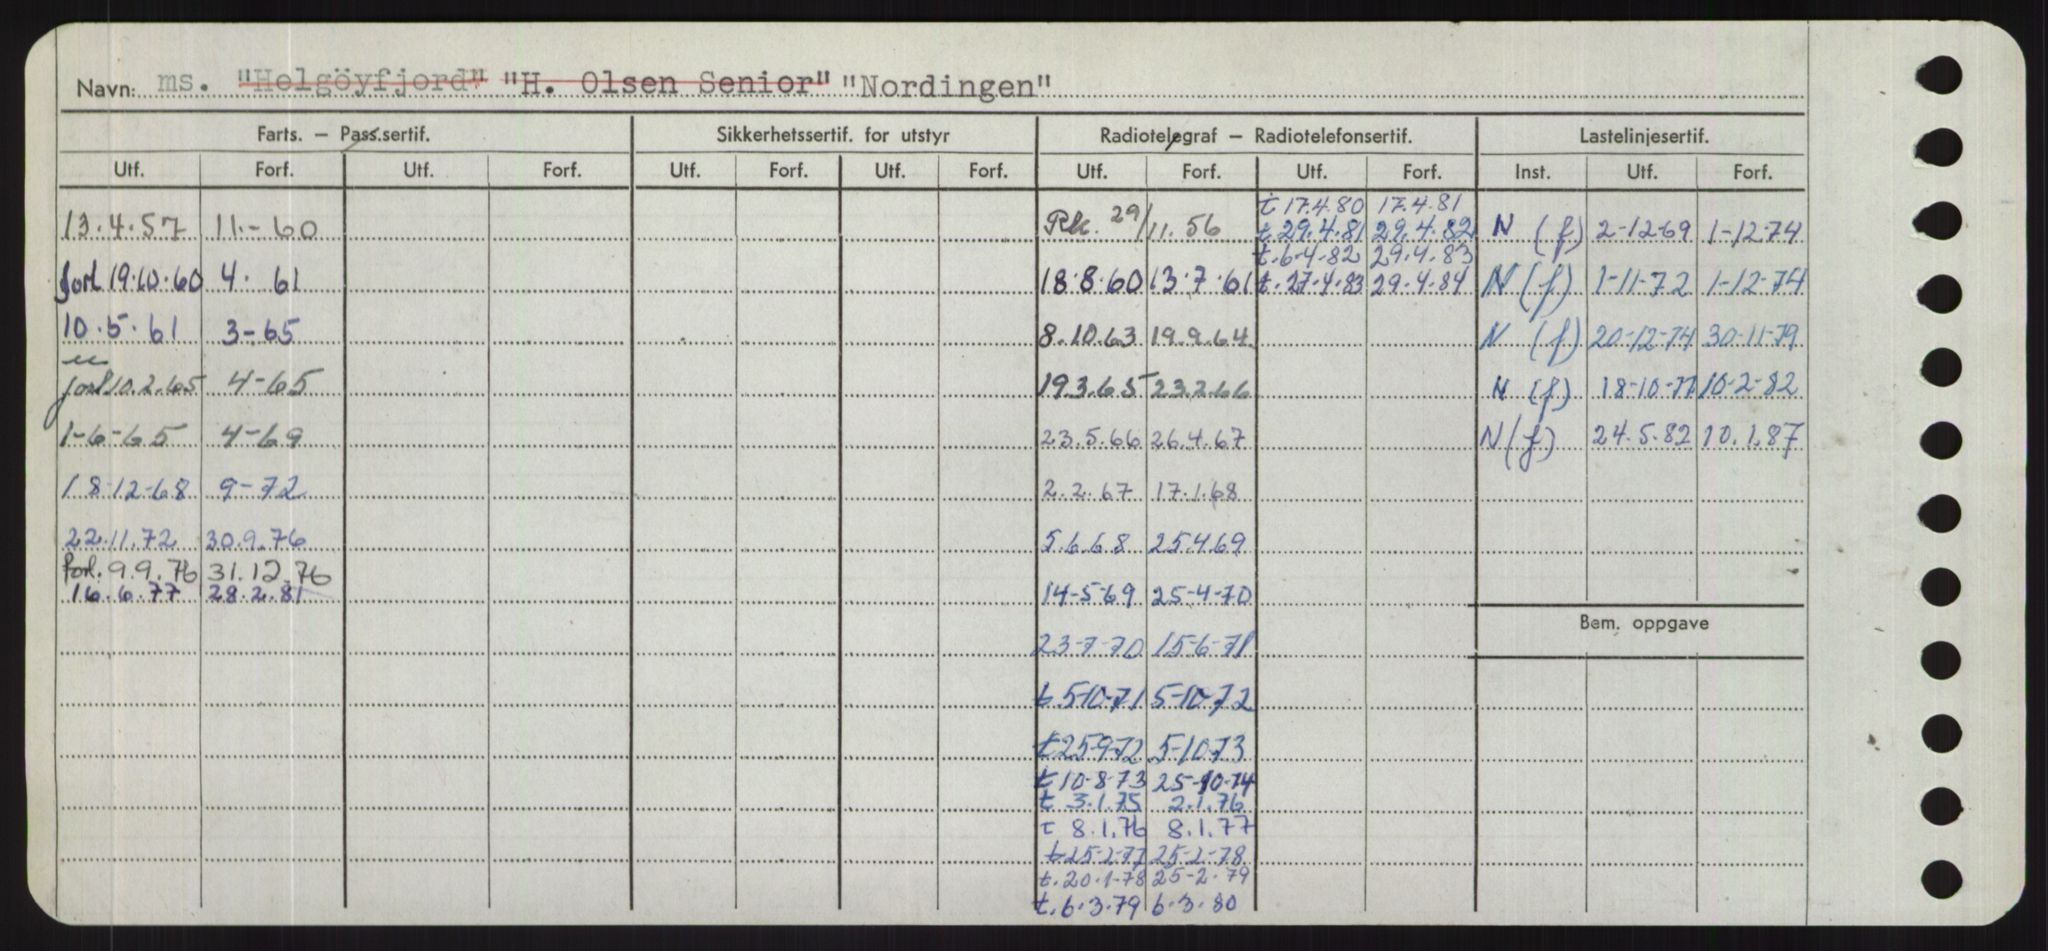 Navn: ms. "Helgöyfjord" "H. Olsen Senior" "Nordingen"
Farts. — Pass.sertif. Sikkerhetssertif. for utstyr Radiotelegraf — Radiotelefonsertif. Lastelinjesertif.
Utf. Forf. Utf. Forf. Utf. Forf. Utf. Forf. Utf. Forf. Utf. Forf. Inst. Utf. Forf.
t 17.4.80 17.4.81
13.4.57 11.-60 Rk. 29/11.56 t 29.4.81 29.4.82 N (f) 2-12-69 1-12-74
t.6-4.82 29.4.83
forl 19.10.60 4. 61 18.8.60 13.7.61 t.27.4.83 29.4.84 N (f) 1-11-72 1-12-74
10.5.61 3-65 8.10.63 19.9.64 N (f) 20-12-74 30-11-79
forl 10.2.65 4-65 19.3.65 23.2.66 N (f) 18-10-77 10-2-82
1-6-65 4-69 23.5.66 26.4.67 N (f) 24.5.82 10.1.87
18-12-68 9-72 2.2.67 17.1.68
22.11.72 30.9.76 5.6.68 25.4.69
forl. 9.9.76 31.12.76
16.6.77 28.2.81 14-5-69 25-4-70
Bem. oppgave
23-7-70 15-6-71
t 5-10-71 5-10-72
t 25-9-72 5-10-73
t 10-8-73 25-10-74
t 3.1.75 2.1.76
t 8.1.76 8.1.77
t 25-2-77 25-2-78
t.20.1-78 25-2.79
t.6.3.79 6.3.80